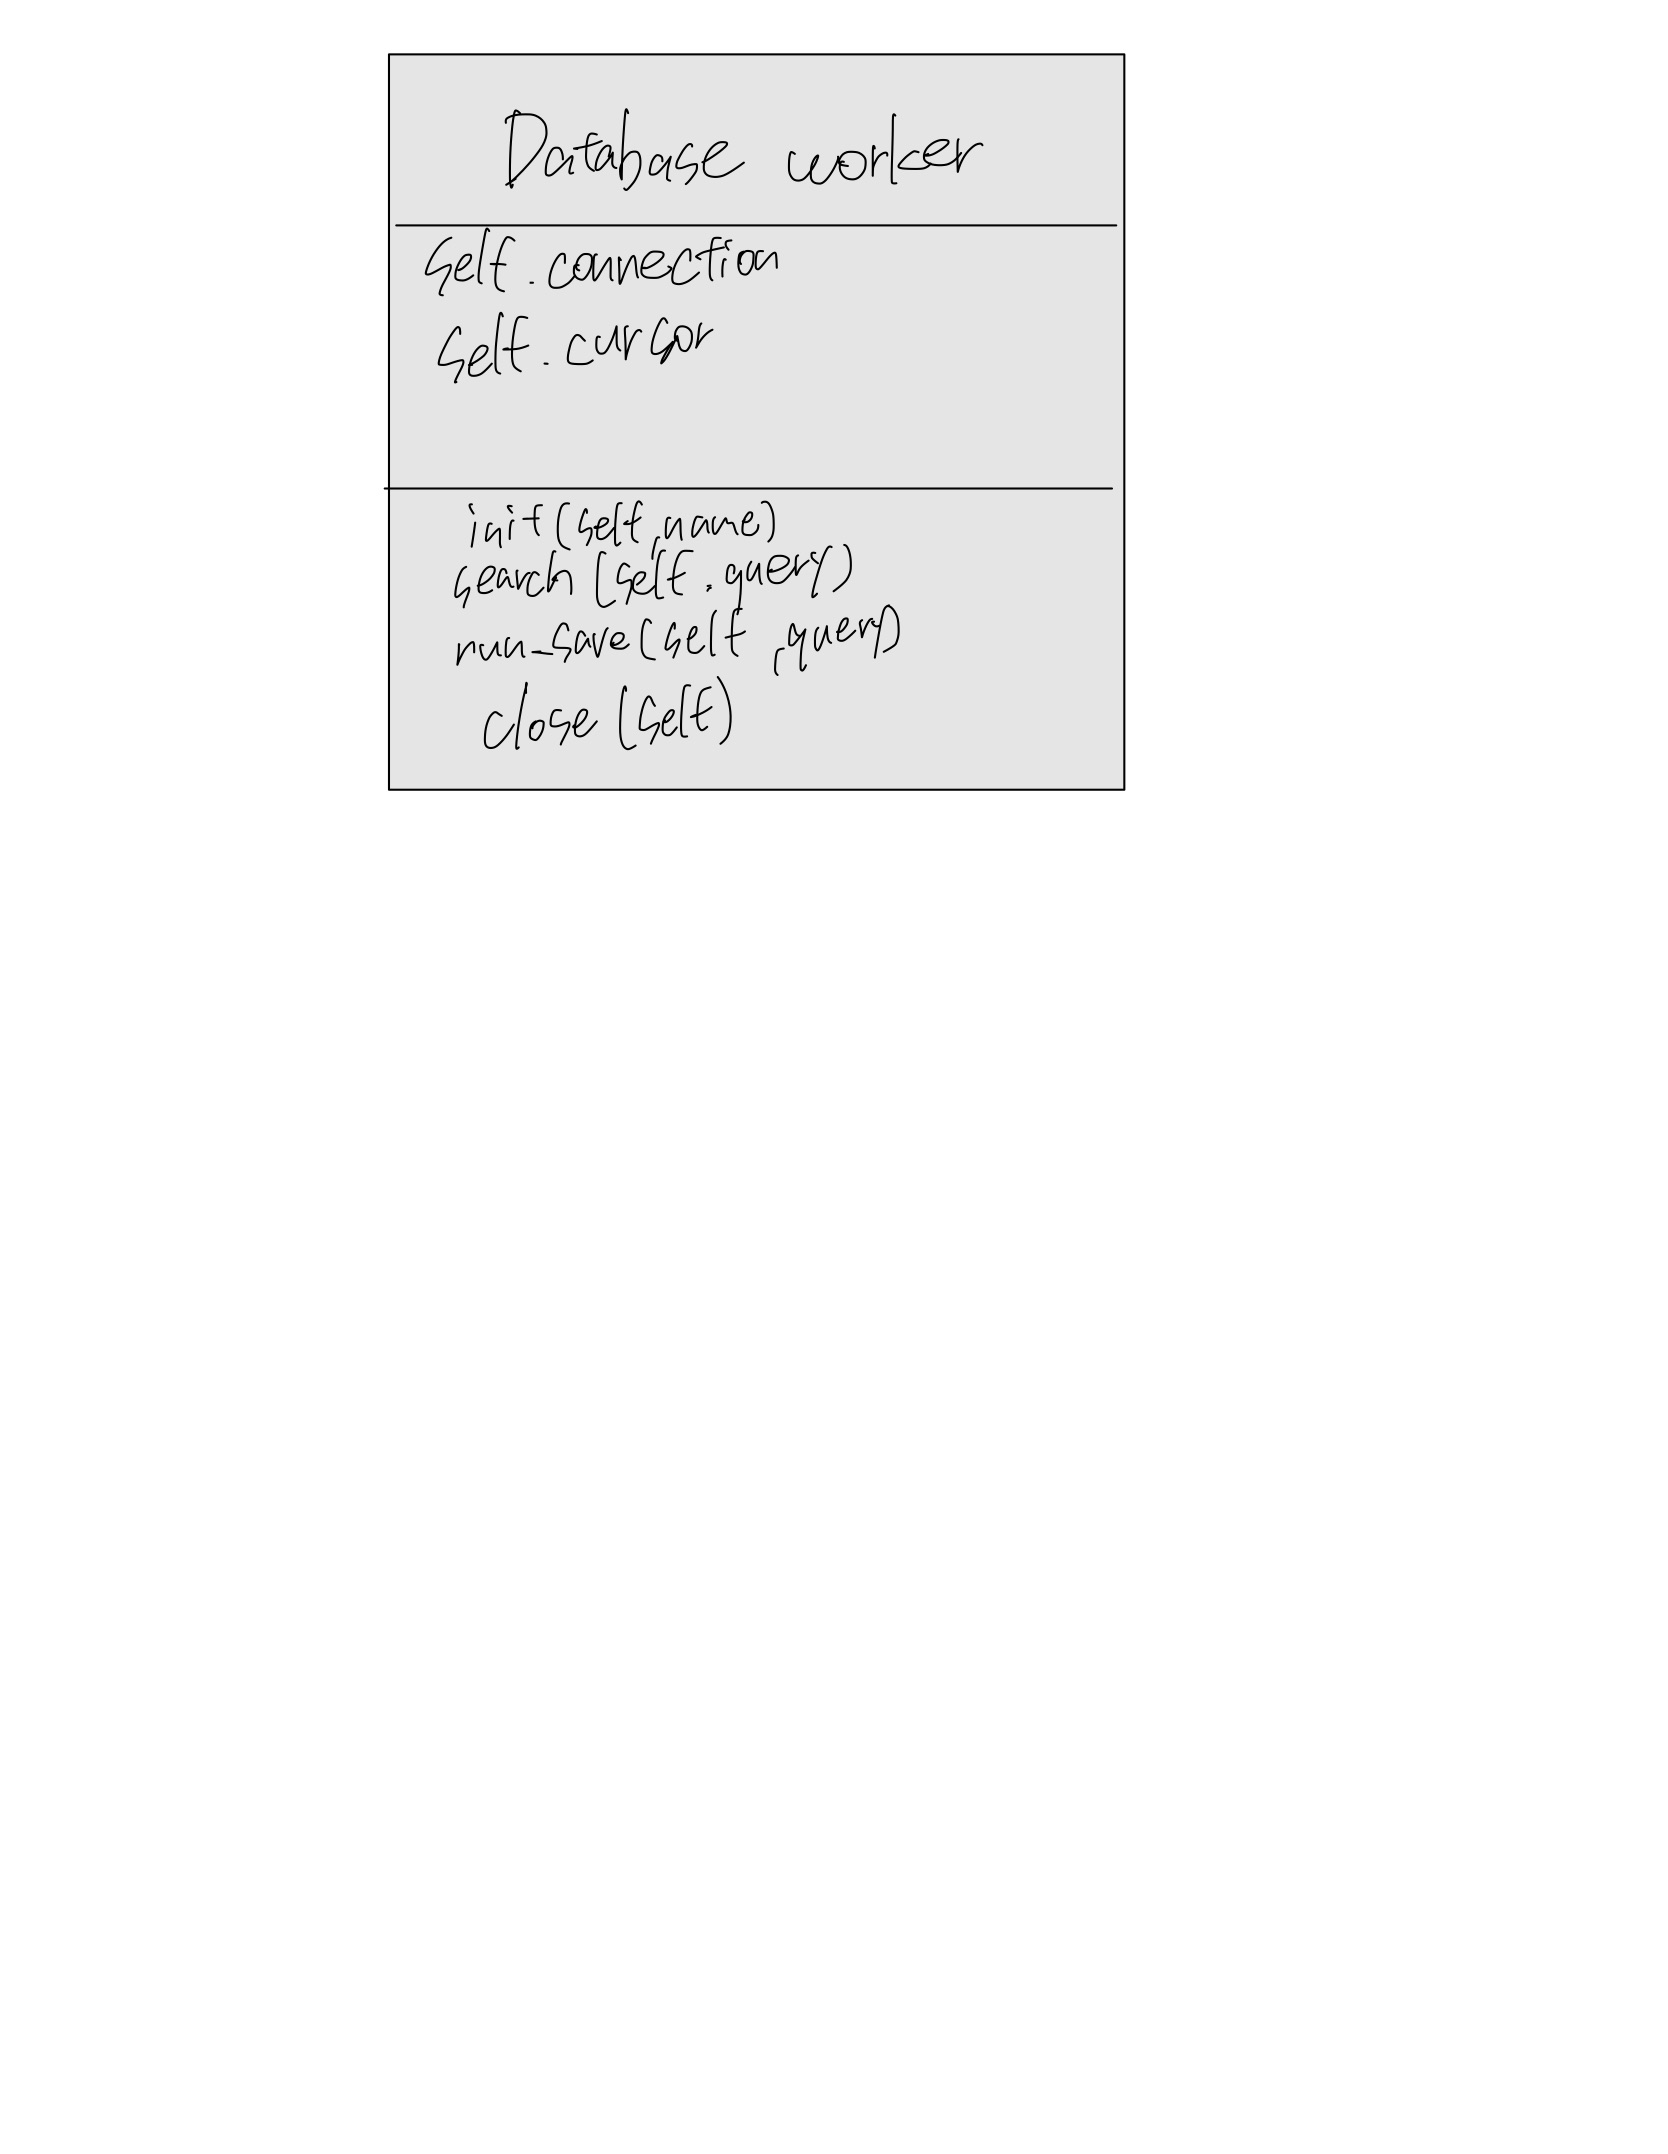 Database worker
self.connection
self.cursor
init(self,name)
search(self.query)
run_save(self,query)
close(self)